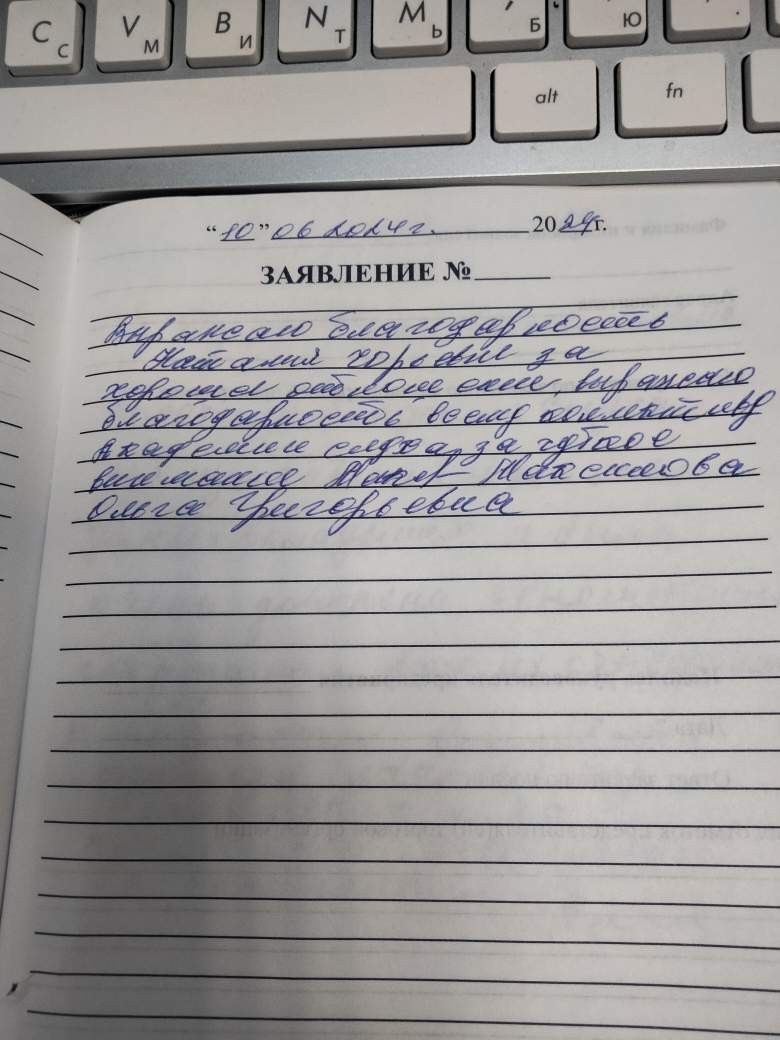 C С
V М
B И
N Т
M Ь
Б
Ю
alt
fn
"10" 06 2024 г. 2024г.
ЗАЯВЛЕНИЕ №
Выражаю благодарность
Наталии за
хорошее выражаю
благодарность всему коллективу
Академии слуха, за чуткое
внимание Максимова
Ольга Григорьевна